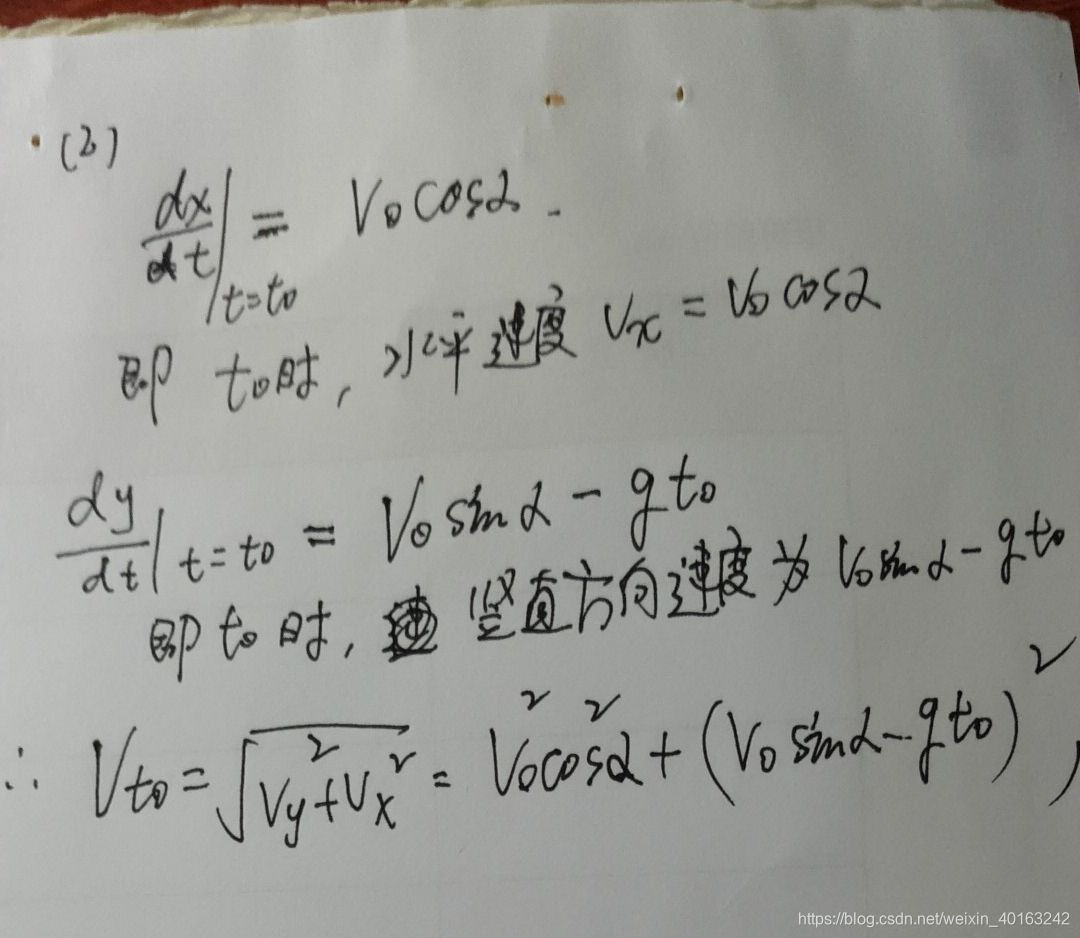 (2)
dx/dt|t=t₀ = V₀cosα.
即 t₀时, 水平速度 Vx = V₀cosα
dy/dt|t=t₀ = V₀sinα - gt₀
即 t₀时, 竖直方向速度为 V₀sinα - gt₀
∴ Vt₀ = √(Vy² + Vx²) = V₀²cos²α + (V₀sinα - gt₀)²,
https://blog.csdn.net/weixin_40163242